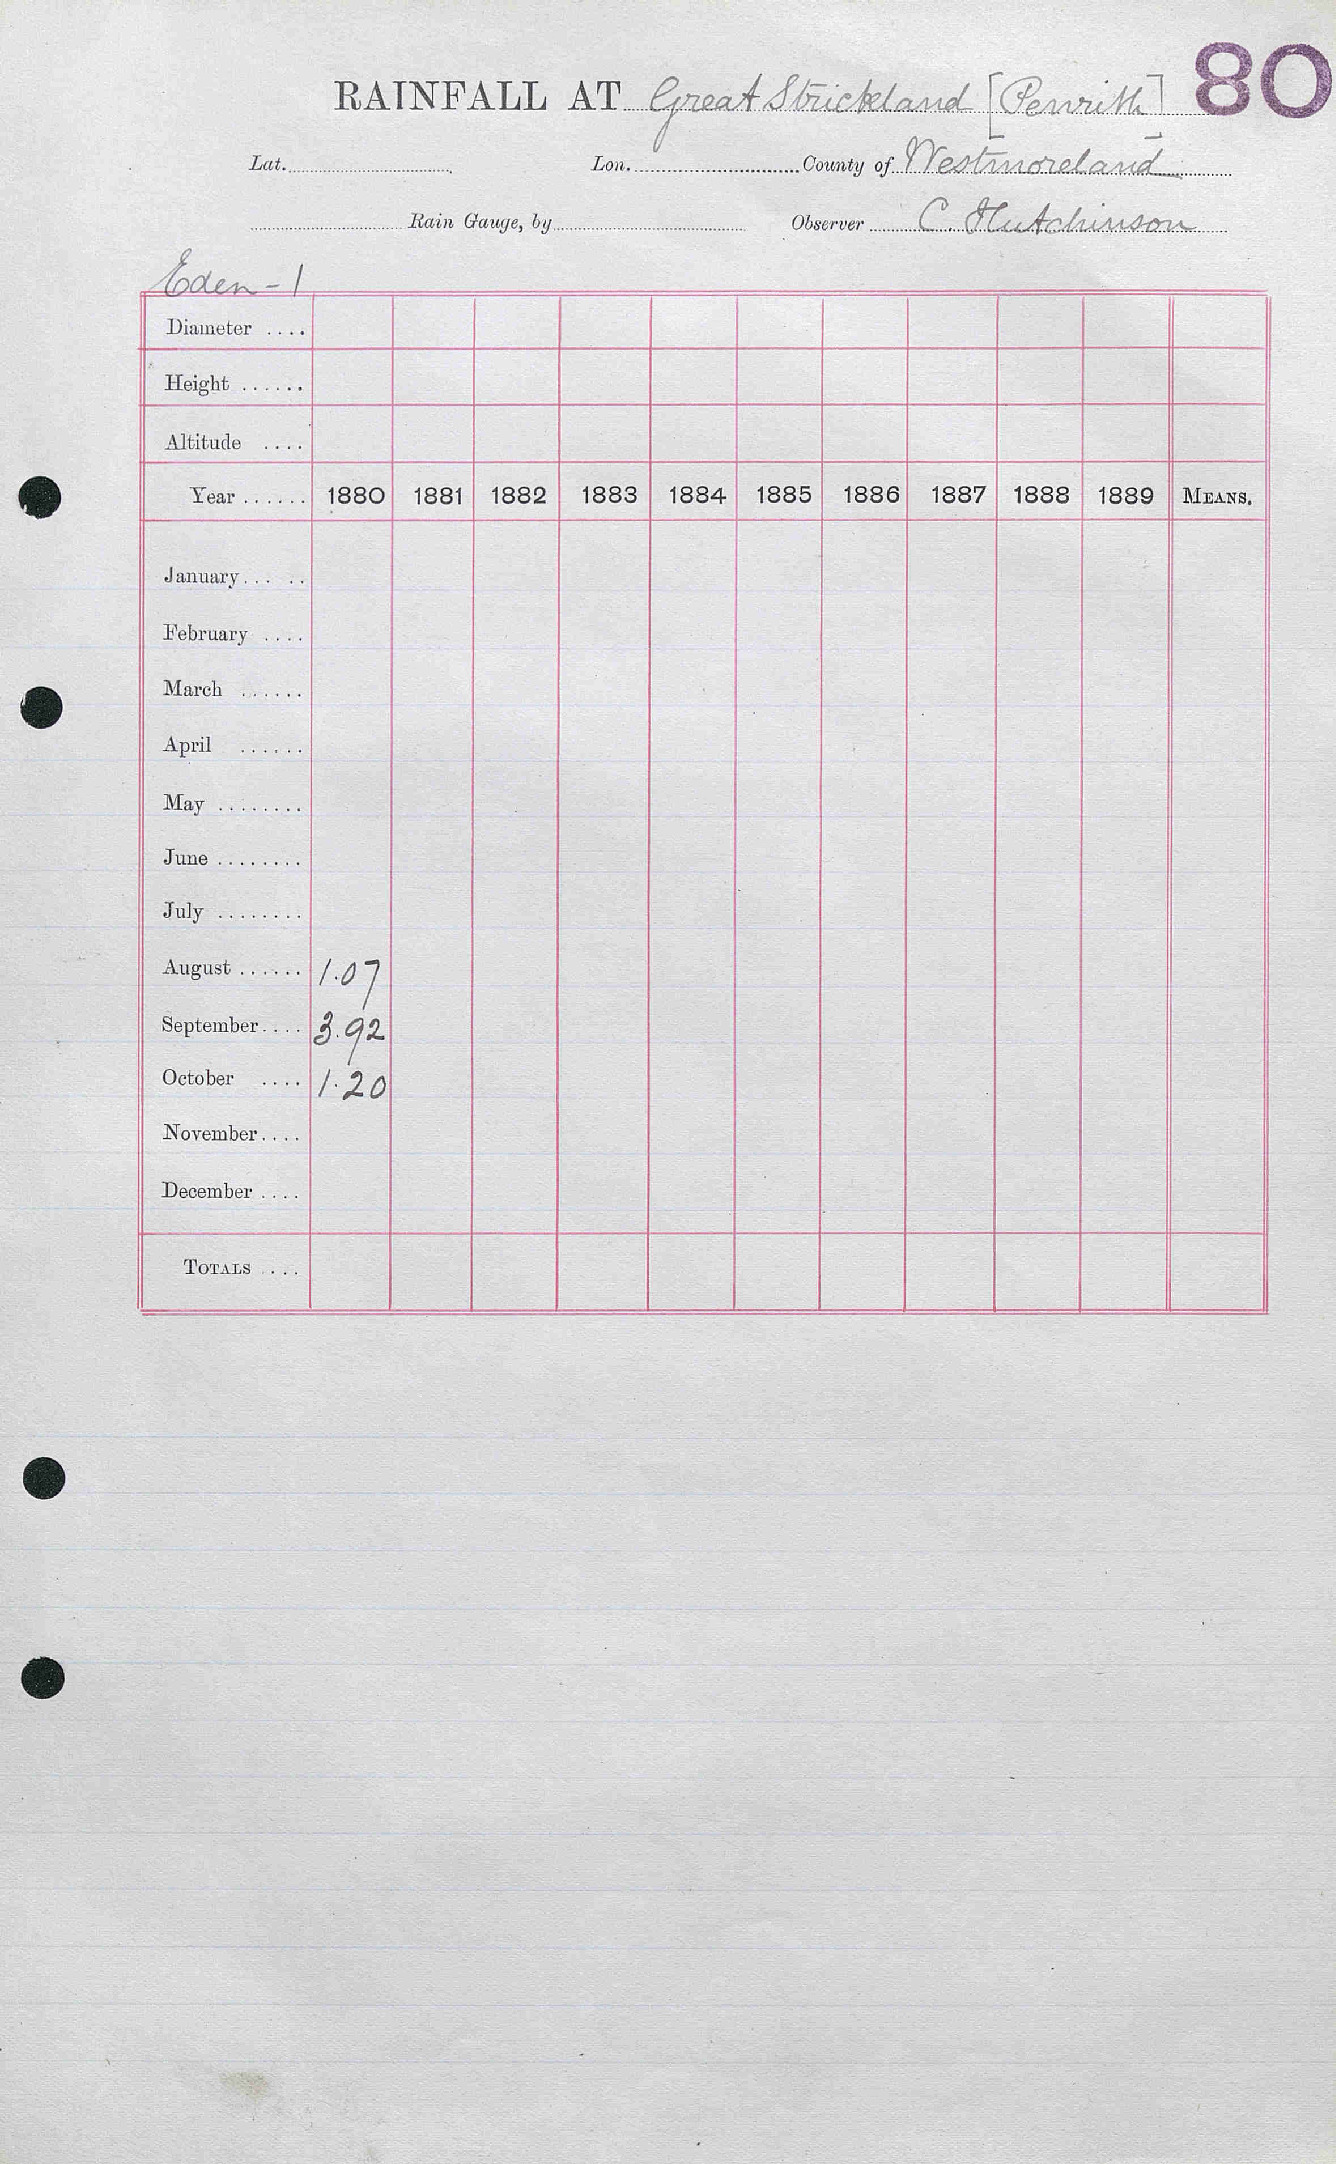 RAINFALL AT Great Strickland [Penrith] 80
Lat. Lon. County of Westmoreland
Rain Gauge, by Observer C. Hutchinson
Eden - 1
Diameter ....
Height ......
Altitude ....
Year ...... 1880 1881 1882 1883 1884 1885 1886 1887 1888 1889 MEANS.
January ... ..
February ....
March ......
April ......
May ........
June ........
July ........
August ...... 1.07
September .... 3.92
October .... 1.20
November ....
December ....
TOTALS ....